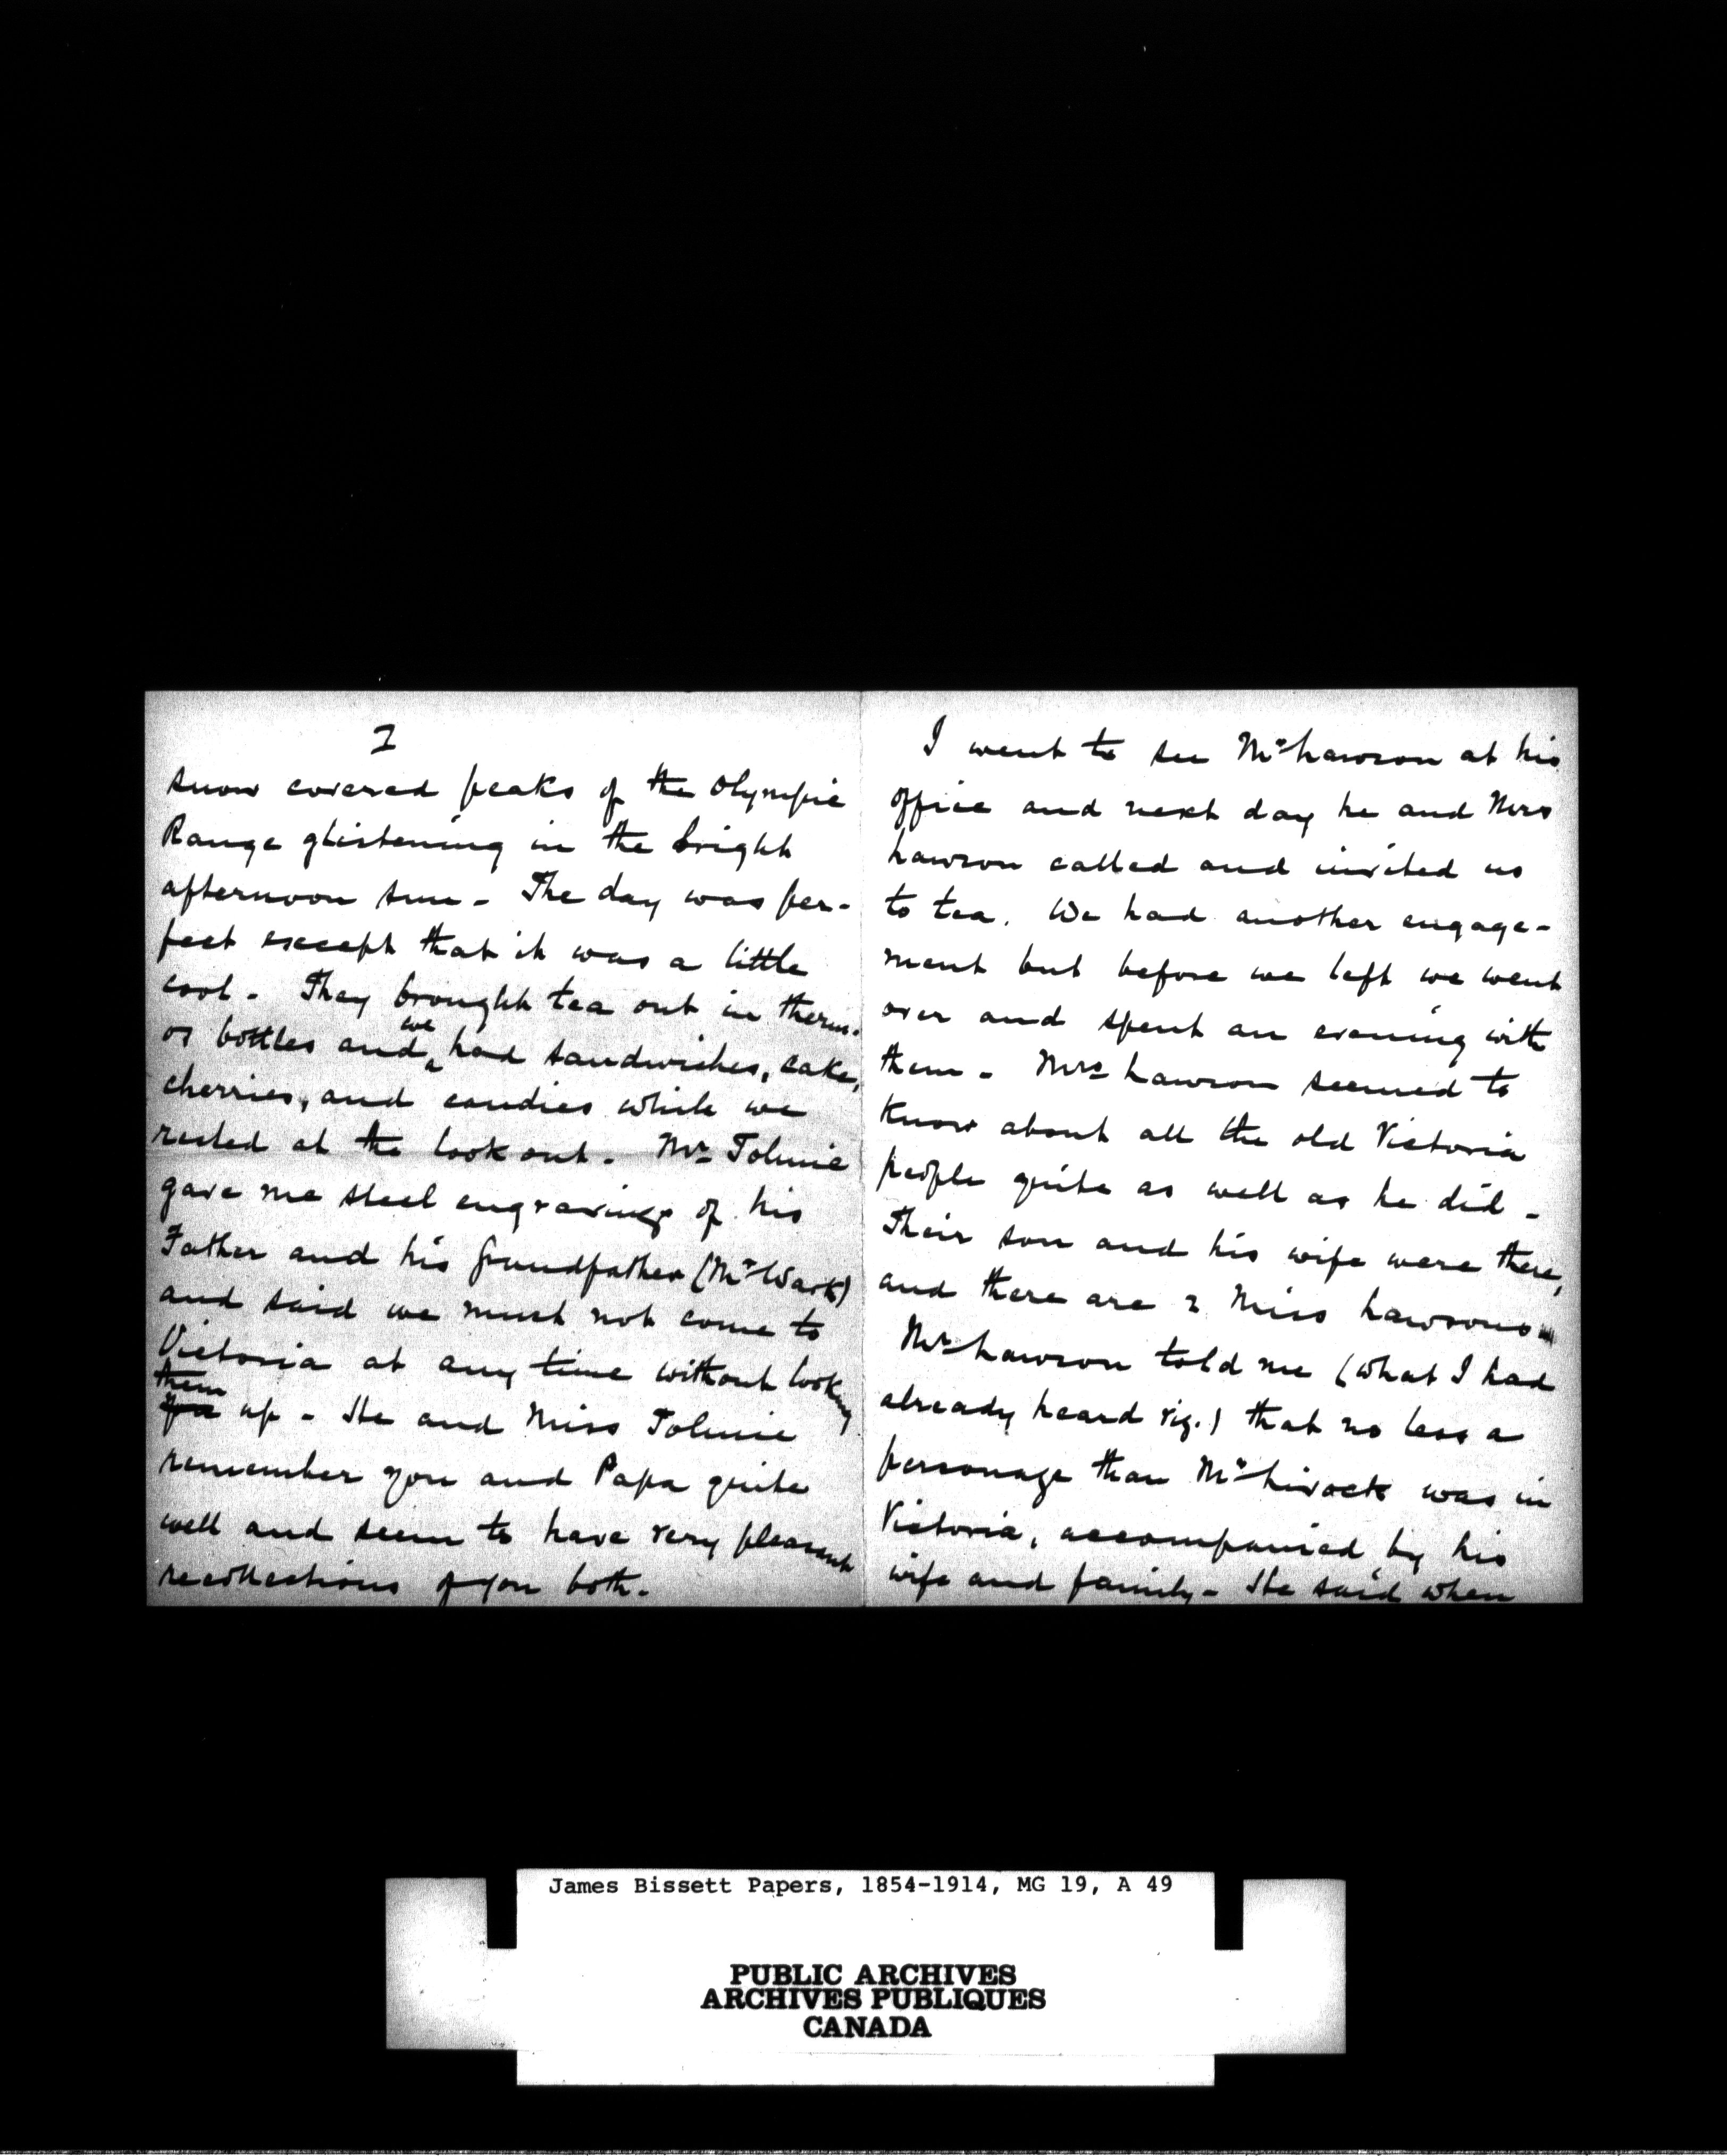 2
snow covered peaks of the Olympic
Range glistening in the bright
afternoon sun - The day was per-
fect except that it was a little
cool - They brought tea out in therm-
os bottles and we had sandwiches, cake,
cherries, and candies while we
rested at the look out - Mr Tolmie
gave me steel engravings of his
Father and his Grandfather (Mr Wark)
and said we must not come to
Victoria at any time without looking
them up - He and Miss Tolmie
remember you and Papa quite
well and seem to have very pleasant
recollections of you both -
I went to see Mr Lawson at his
office and next day he and Mrs
Lawson called and invited us
to tea. We had another engage-
ment but before we left we went
over and spent an evening with
them - Mrs Lawson seemed to
know about all the old Victoria
people quite as well as he did -
Their son and his wife were there,
and there are 2 Miss Lawsons
Mr Lawson told me (what I had
already heard viz.) that no less a
personage than Mr Livock was in
Victoria, accompanied by his
wife and family - He said when
James Bissett Papers, 1854-1914, MG 19, A 49
PUBLIC ARCHIVES
ARCHIVES PUBLIQUES
CANADA